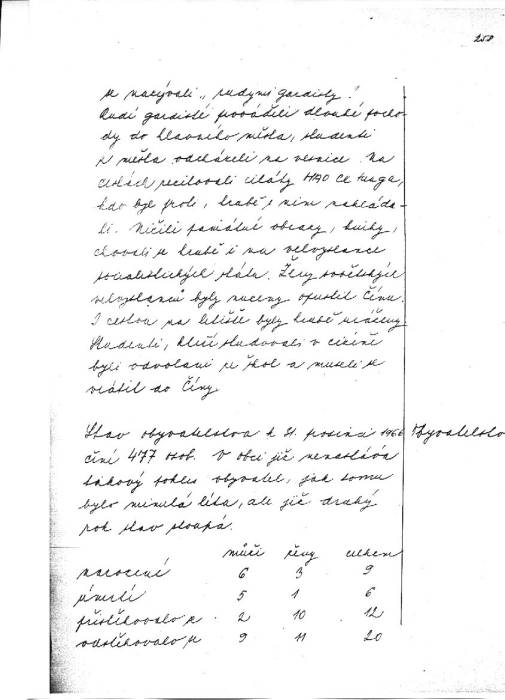 258
se nazývali "rudými gardisty".
Rudí gardisté prováděli dlouhé pocho-
dy do hlavního města, studenti
z města odcházeli na vesnice. Na
cestách recitovali citáty MAO Ce tunga,
kdo byl proti, hrubě s ním nakláda-
li. Ničili památné obrazy, knihy,
chovali se hrubě i na velvyslance
socialistických států. Ženy sovětských
velvyslanců byly nuceny opustit Čínu.
I cestou na letiště byly hrubě uráženy.
Studenti, kteří studovali v cizině
byli odvoláni ze škol a museli se
vrátit do Číny.
Stav obyvatelstva k 31. prosinci 1966
Obyvatelstvo
činí 477 osob. V obci již nenastává
takový pokles obyvatel, jak tomu
bylo minulá léta, ale již druhý
rok stav stoupá.
muži ženy celkem
narození 6 3 9
úmrtí 5 1 6
přistěhovalo se 2 10 12
odstěhovalo se 9 11 20